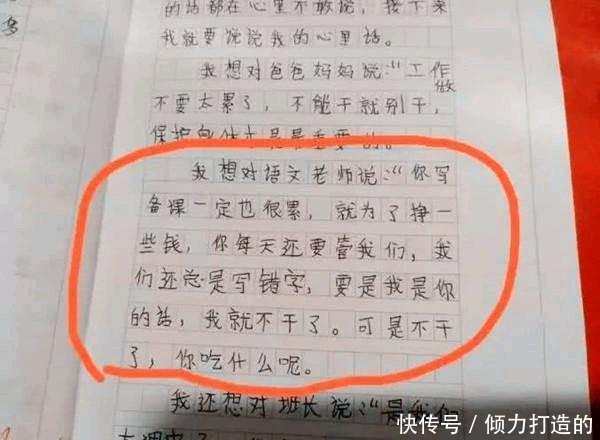 的话都在心里不敢说，接下来
我就要说说我的心里话。
我想对爸爸妈妈说：“工作做
不要太累了，不能干就别干，
保护身体才是最重要的。
我想对语文老师说：“你写
备课一定也很累，就为了挣一
些钱，你每天还要管我们，我
们还总是写错字，要是我是你
的话，我就不干了。可是不干
了，你吃什么呢。
我还想对班长说：“是我们
快传号 / 倾力打造的